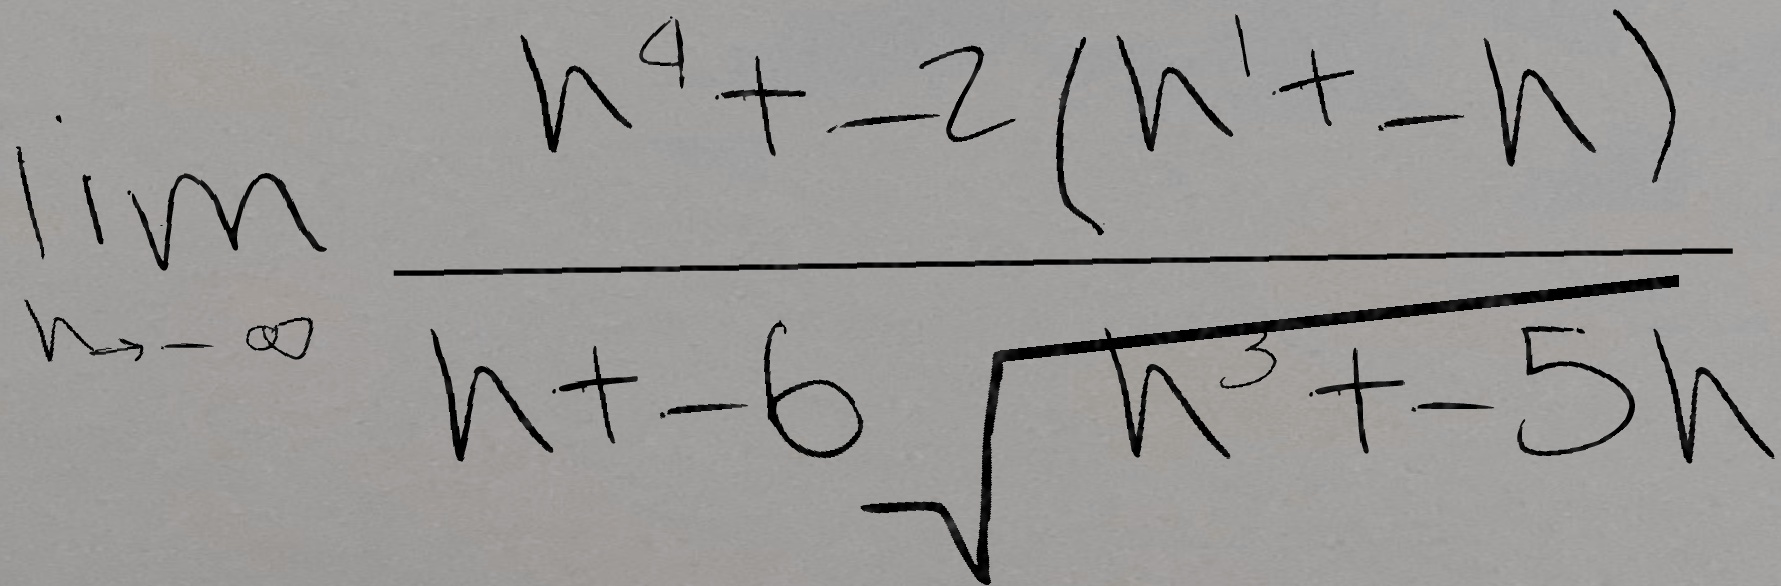 \lim_{n \to -\infty} \frac{n^4 + -2(n^1 + -n)}{n + -6\sqrt{n^3 + -5n}}